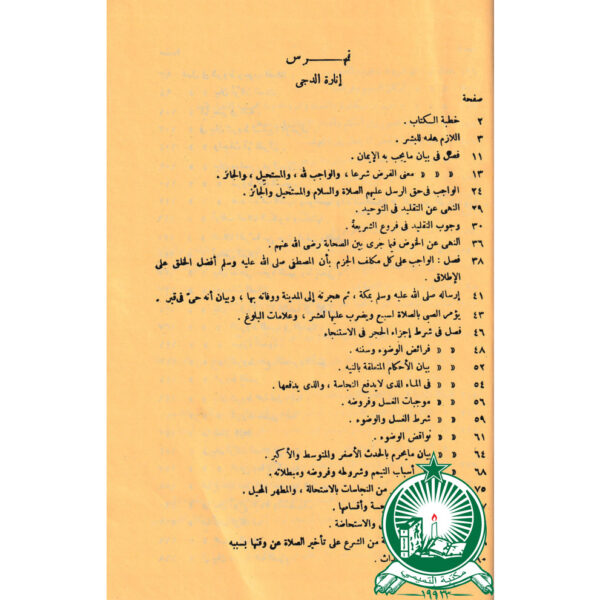 فهرس
إنارة الدجى
صفحة
٢ خطبة الكتاب .
٣ اللازم علمه للبشر .
١١ فصل فى بيان مايجب به الإيمان .
١٣ « « معنى الفرض شرعا ، والواجب لله ، والمستحيل ، والجائز .
٢٤ الواجب فى حق الرسل عليهم الصلاة والسلام والمستحيل والجائز .
٢٩ النهى عن التقليد فى التوحيد .
٣٠ وجوب التقليد فى فروع الشريعة .
٣٦ النهى عن الخوض فيما جرى بين الصحابة رضى الله عنهم .
٣٨ فصل : الواجب على كل مكلف الجزم بأن المصطفى صلى الله عليه وسلم أفضل الخلق على
الإطلاق .
٤١ إرساله صلى الله عليه وسلم بمكة ، ثم هجرته إلى المدينة ووفاته بها ، وبيان أنه حىّ فى قبره .
٤٣ يؤمر الصبى بالصلاة لسبع ويضرب عليها لعشر ، وعلامات البلوغ .
٤٦ فصل فى شرط إجزاء الحجر فى الاستنجاء
٤٨ « « فرائض الوضوء وسننه .
٥٢ « « بيان الأحكام المتعلقة بالنية .
٥٤ « « فى الماء الذى لايدفع النجاسة ، والذى يدفعها .
٥٦ « « موجبات الغسل وفروضه .
٥٩ « « شرط الغسل والوضوء .
٦١ « « نواقض الوضوء .
٦٤ « « بيان مايحرم بالحدث الأصغر والمتوسط والأكبر .
٦٨ « « أسباب التيمم وشروطه وفروضه ومبطلاته .
٧٥ من النجاسات بالاستحالة ، والمطهر المحيل .
وأقسامها .
والاستحاضة .
من الشرع على تأخير الصلاة عن وقتها بسببه
مكتبة التميمي
١٩٩٣